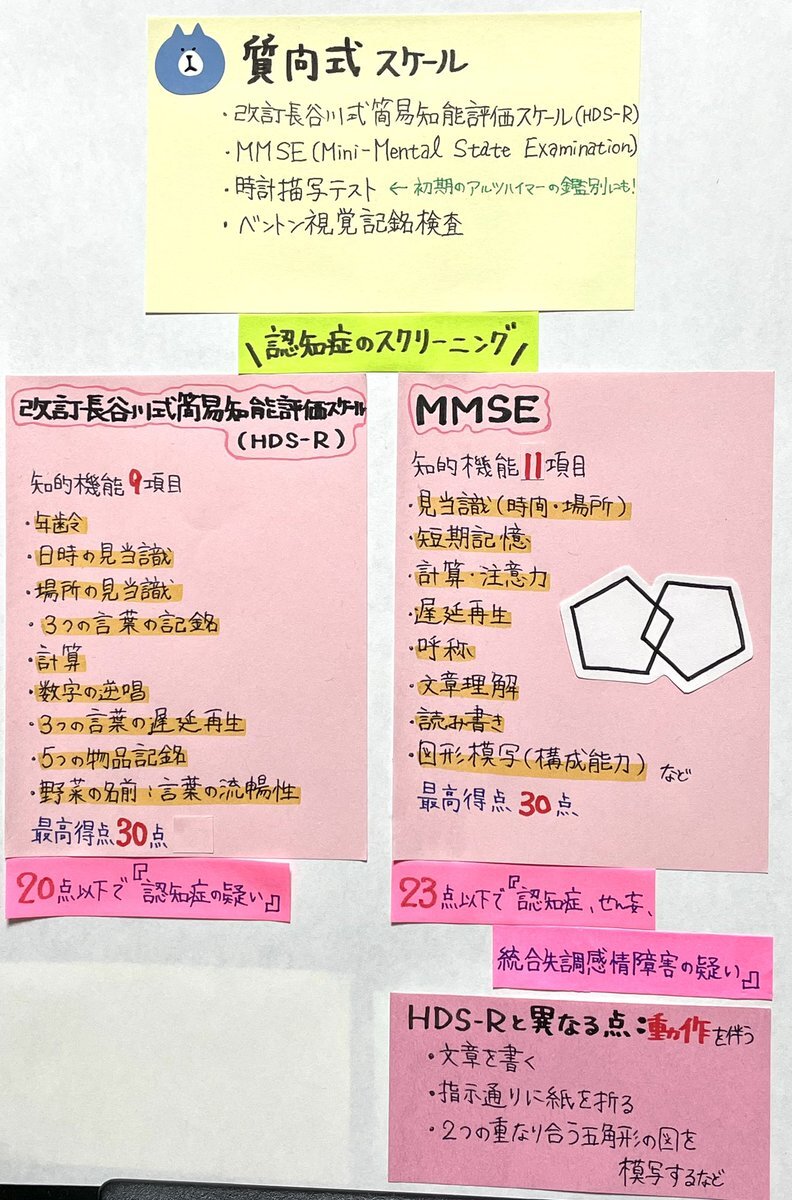 質向式スケール
・改訂長谷川式簡易知能評価スケール(HDS-R)
・MMSE(Mini-Mental State Examination)
・時計描写テスト ← 初期のアルツハイマーの鑑別にも!
・ベントン視覚記銘検査
\認知症のスクリーニング/
改訂長谷川式簡易知能評価スケール
(HDS-R)
知的機能9項目
・年齢
・日時の見当識
・場所の見当識
・3つの言葉の記銘
・計算
・数字の逆唱
・3つの言葉の遅延再生
・5つの物品記銘
・野菜の名前:言葉の流暢性
最高得点30点
20点以下で『認知症の疑い』
MMSE
知的機能11項目
・見当識(時間・場所)
・短期記憶
・計算・注意力
・遅延再生
・呼称
・文章理解
・読み書き
・図形模写(構成能力)など
最高得点30点
23点以下で『認知症、せん妄、
統合失調感情障害の疑い』
HDS-Rと異なる点:動作を伴う
・文章を書く
・指示通りに紙を折る
・2つの重なり合う五角形の図を
模写するなど